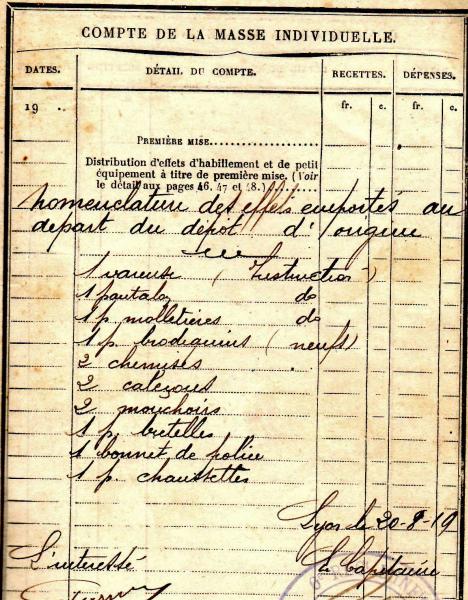 COMPTE DE LA MASSE INDIVIDUELLE.
DATES. DÉTAIL DU COMPTE. RECETTES. DÉPENSES.
fr. c. fr. c.
19 .
PREMIÈRE MISE....................
Distribution d'effets d'habillement et de petit
équipement à titre de première mise. (Voir
le détail aux pages 46, 47 et 48.)..........
nomenclature des effets emportés au
départ du dépôt d'origine
1 vareuse (Instruction)
1 pantalon do
1 p. molletières do
1 p. brodequins (neufs)
2 chemises
2 caleçons
2 mouchoirs
1 p. bretelles
1 bonnet de police
1 p. chaussettes
Lyon le 20-8-19
L'intéressé Le Capitaine